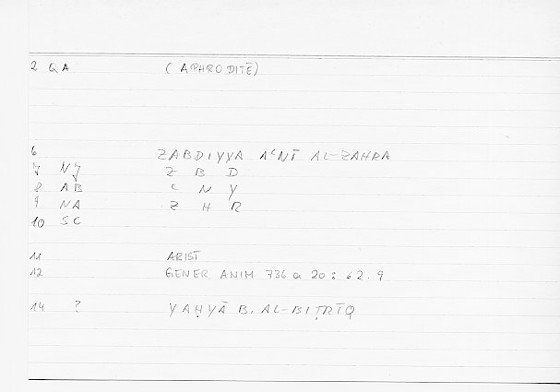 2 QA (APHRODITĒ)
6 ZABDIYYA AʿNĪ AL-ZAHRA
7 NJ Z B D
8 AB ʿ N Y
9 NA Z H R
10 SC
11 ARIST
12 GENER ANIM 736 a 20 : 62.9
14 ? YAḤYĀ B. AL-BIṬRĪQ